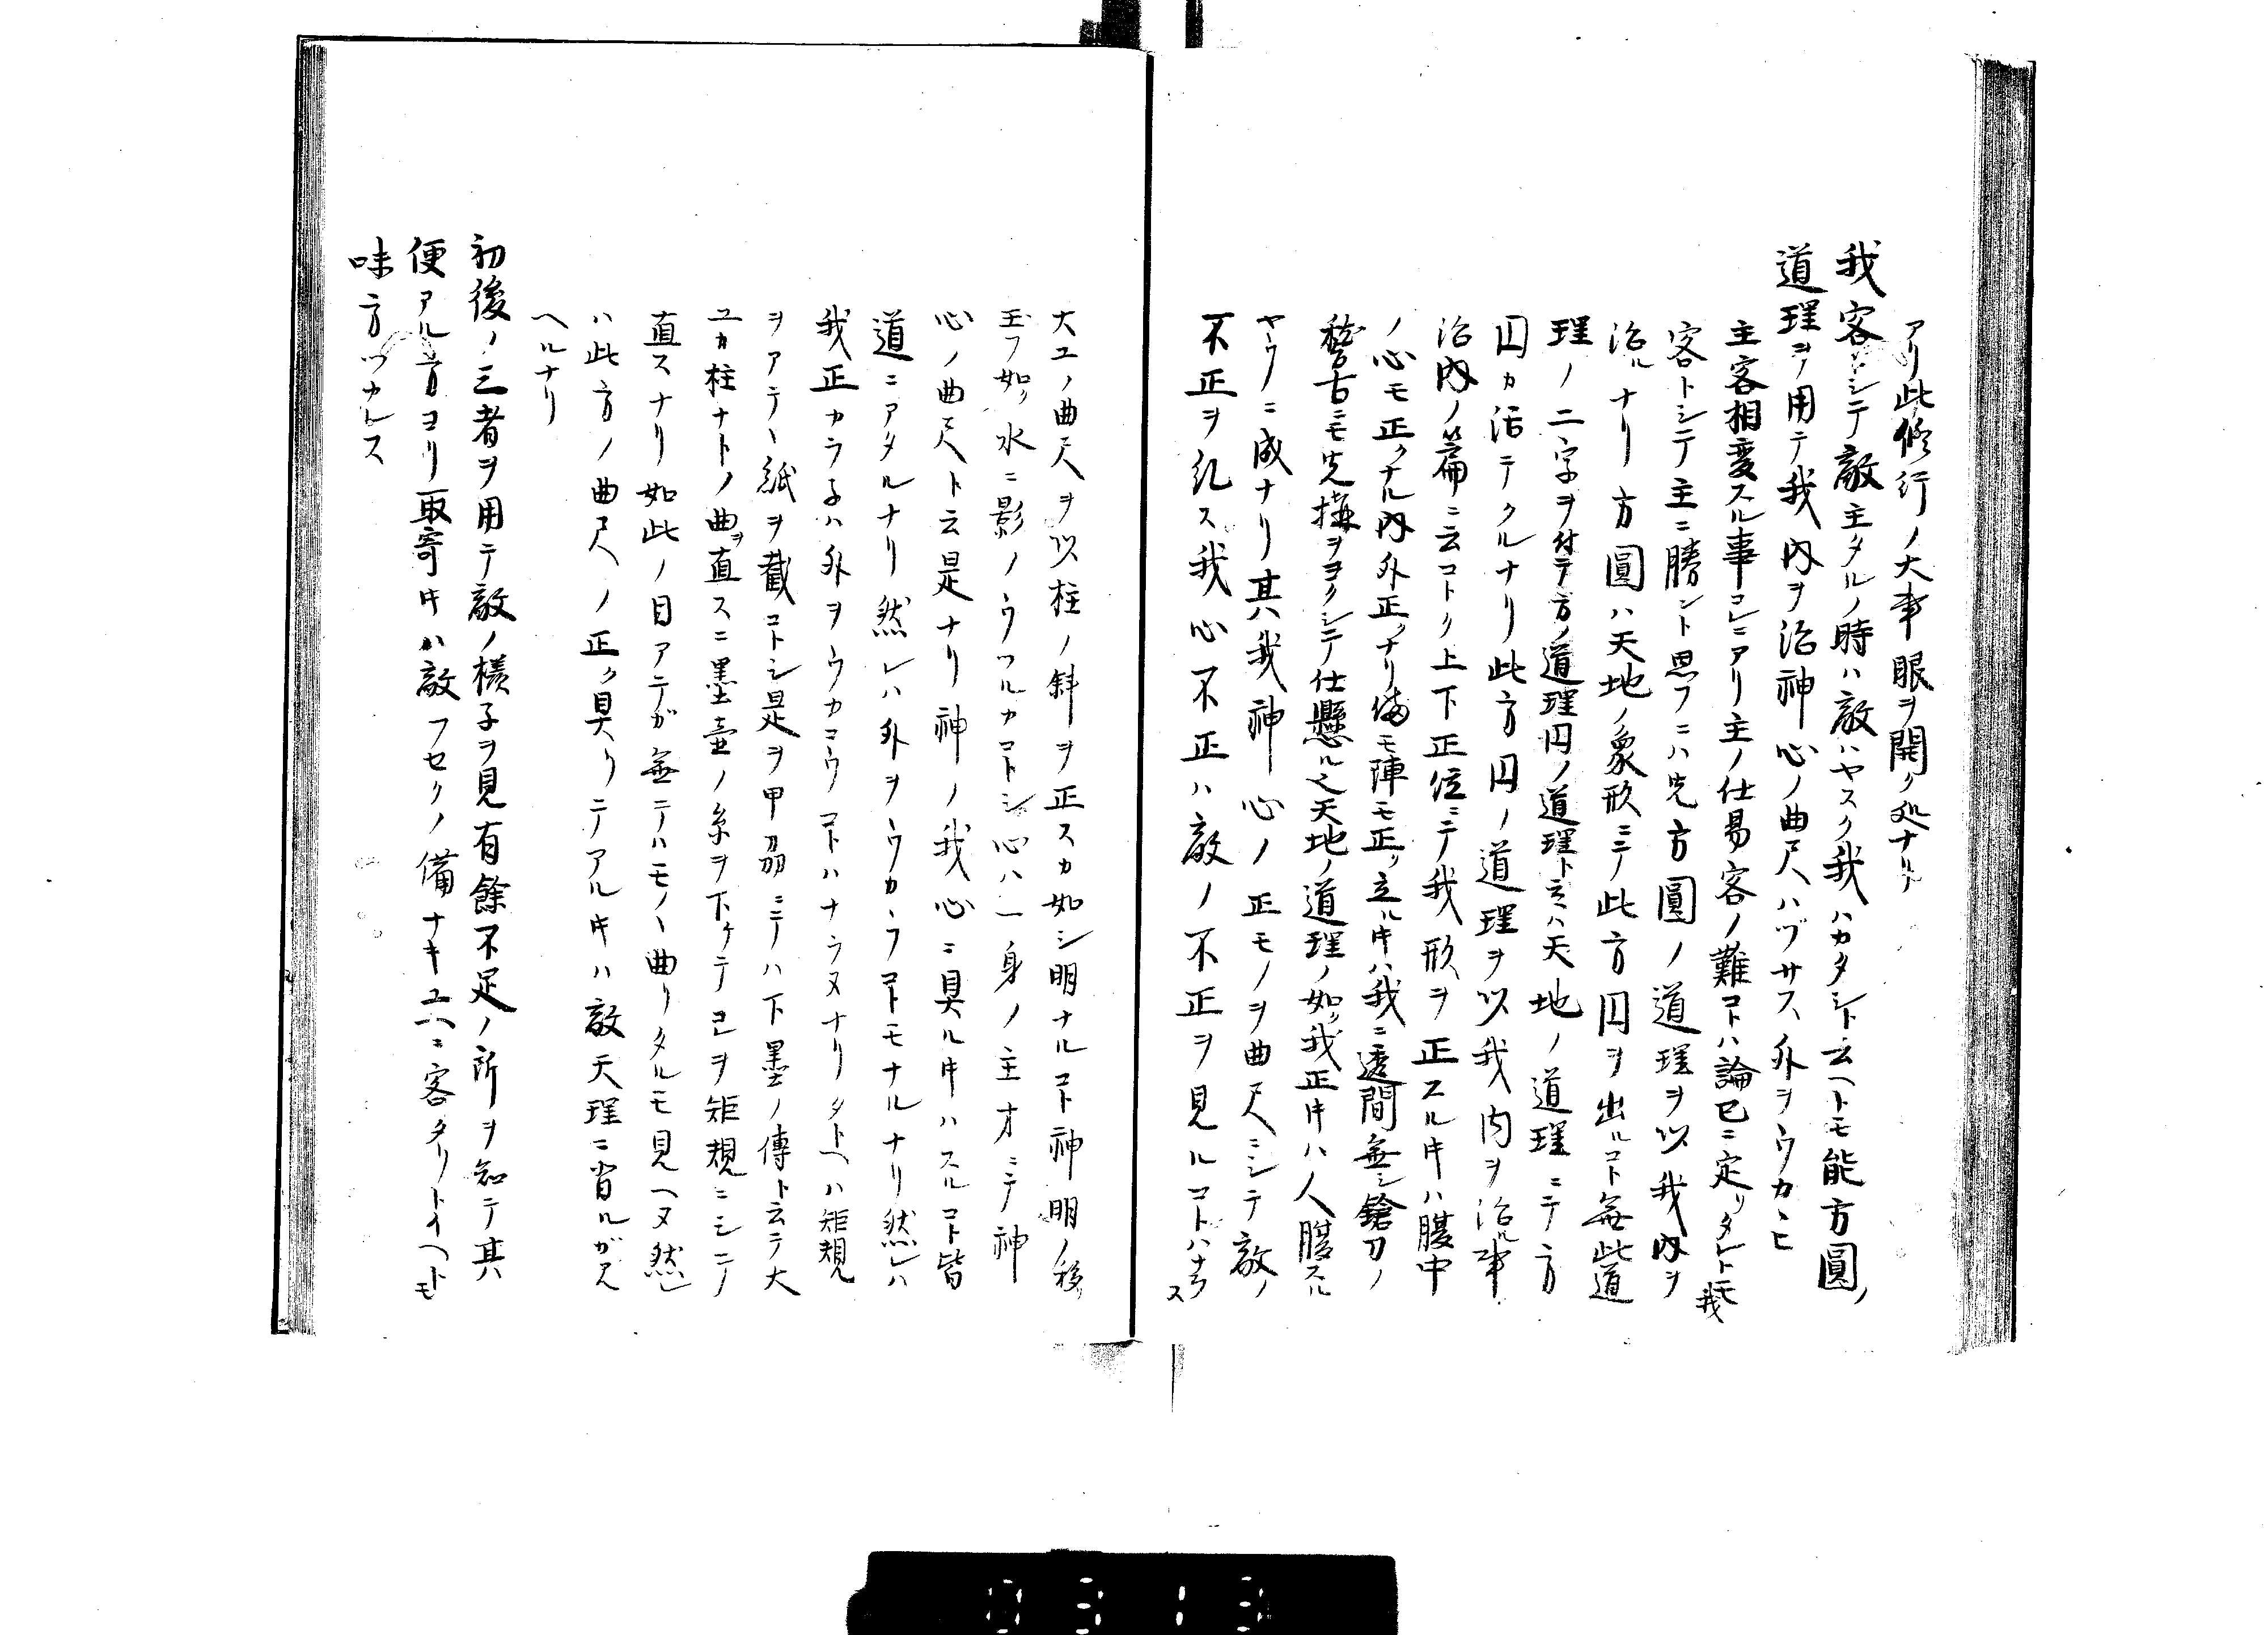 アリ此修行ノ大事眼ヲ開ク処ナリ
我客トシテ敵主タルノ時ハ敵ハヤスク我ハカタシト云ヘトモ能方圓ノ
道理ヲ用テ我内ヲ治神心ノ曲尺ハヅサス外ヲウカヽヒ
主客相変スル事コレニアリ主ノ仕易客ノ難コトハ論已ニ定リタレトモ我
客トシテ主ニ勝ント思フニハ先方圓ノ道理ヲ以我内ヲ
治ルナリ方圓ハ天地ノ象形ニテ此方円ヲ出ルコト無此道
理ノ二字ヲ付テ方ノ道理円ノ道理ト云ハ天地ノ道理ニテ方
円カ活テクルナリ此方円ノ道理ヲ以我内ヲ治ル事
治内ノ篇ニ云コトク上下正位ニテ我形ヲ正スル寸ハ腹中
ノ心モ正クナル内外正クナリ備モ陣モ正ク立ル寸ハ我ニ透間無シ鎗刀ノ
稽古ニモ先構ヲヨクシテ仕懸ル也天地ノ道理ノ如ク我正寸ハ人腹スル
ヤウニ成ナリ其我神心ノ正モノヲ曲尺ニシテ敵ノ
不正ヲ糺ス我心不正ハ敵ノ不正ヲ見ルコトハナラス
大工ノ曲尺ヲ以柱ノ斜ヲ正スカ如シ明ナルコト神明ノ移リ
玉フ如ク水ニ影ノウツルカコトシ心ハ一身ノ主才ニテ神
心ノ曲尺ト云是ナリ神ノ我心ニ具ル寸ハスルコト皆
道ニアタルナリ然レハ外ヲウカヽフコトモナルナリ然レハ
我正カラ子ハ外ヲウカヽウコトハナラヌナリタトヘハ矩規
ヲアテヽ紙ヲ截コトシ是ヲ甲刕ニテハ下墨ノ傳ト云テ大
工カ柱ナトノ曲ヲ直スニ墨壷ノ糸ヲ下ケテコレヲ矩規ニシテ
直スナリ如此ノ目アテガ無テハモノヽ曲リタルモ見ヘヌ然レ
ハ此方ノ曲尺ノ正ク具リテアル寸ハ敵天理ニ背ルガ見
ヘルナリ
初後ノ三者ヲ用テ敵ノ様子ヲ見有餘不足ノ所ヲ知テ其
便アル方ヨリ取寄寸ハ敵フセクノ備ナキユヘニ客タリトイヘトモ
味方ツカルス